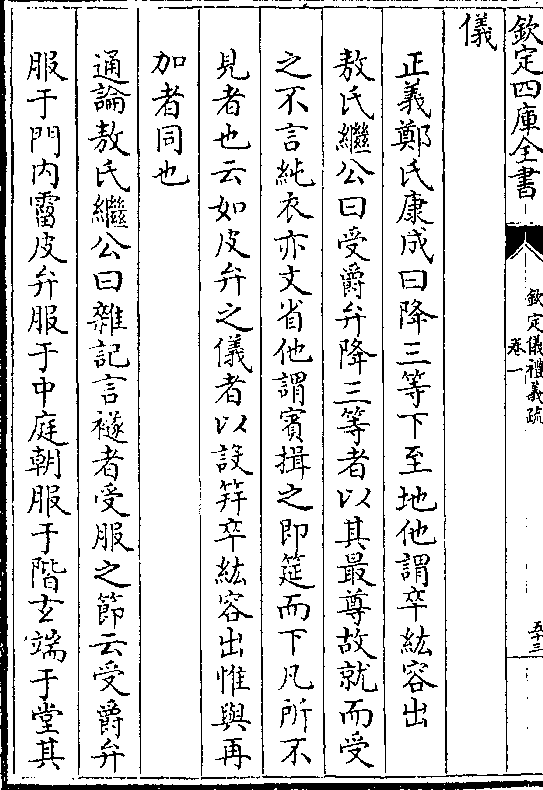 欽定四庫全書
欽定儀禮義疏
卷一
五十三
儀
正義鄭氏康成曰降三等下至地他謂卒紘容出
敖氏繼公曰受爵弁降三等者以其最尊故就而受
之不言純衣亦文省他謂賓揖之即筵而下凡所不
見者也云如皮弁之儀者以設笄卒紘容出惟與再
加者同也
通論敖氏繼公曰雜記言襚者受服之節云受爵弁
服于門内霤皮弁服于中庭朝服于階玄端于堂其